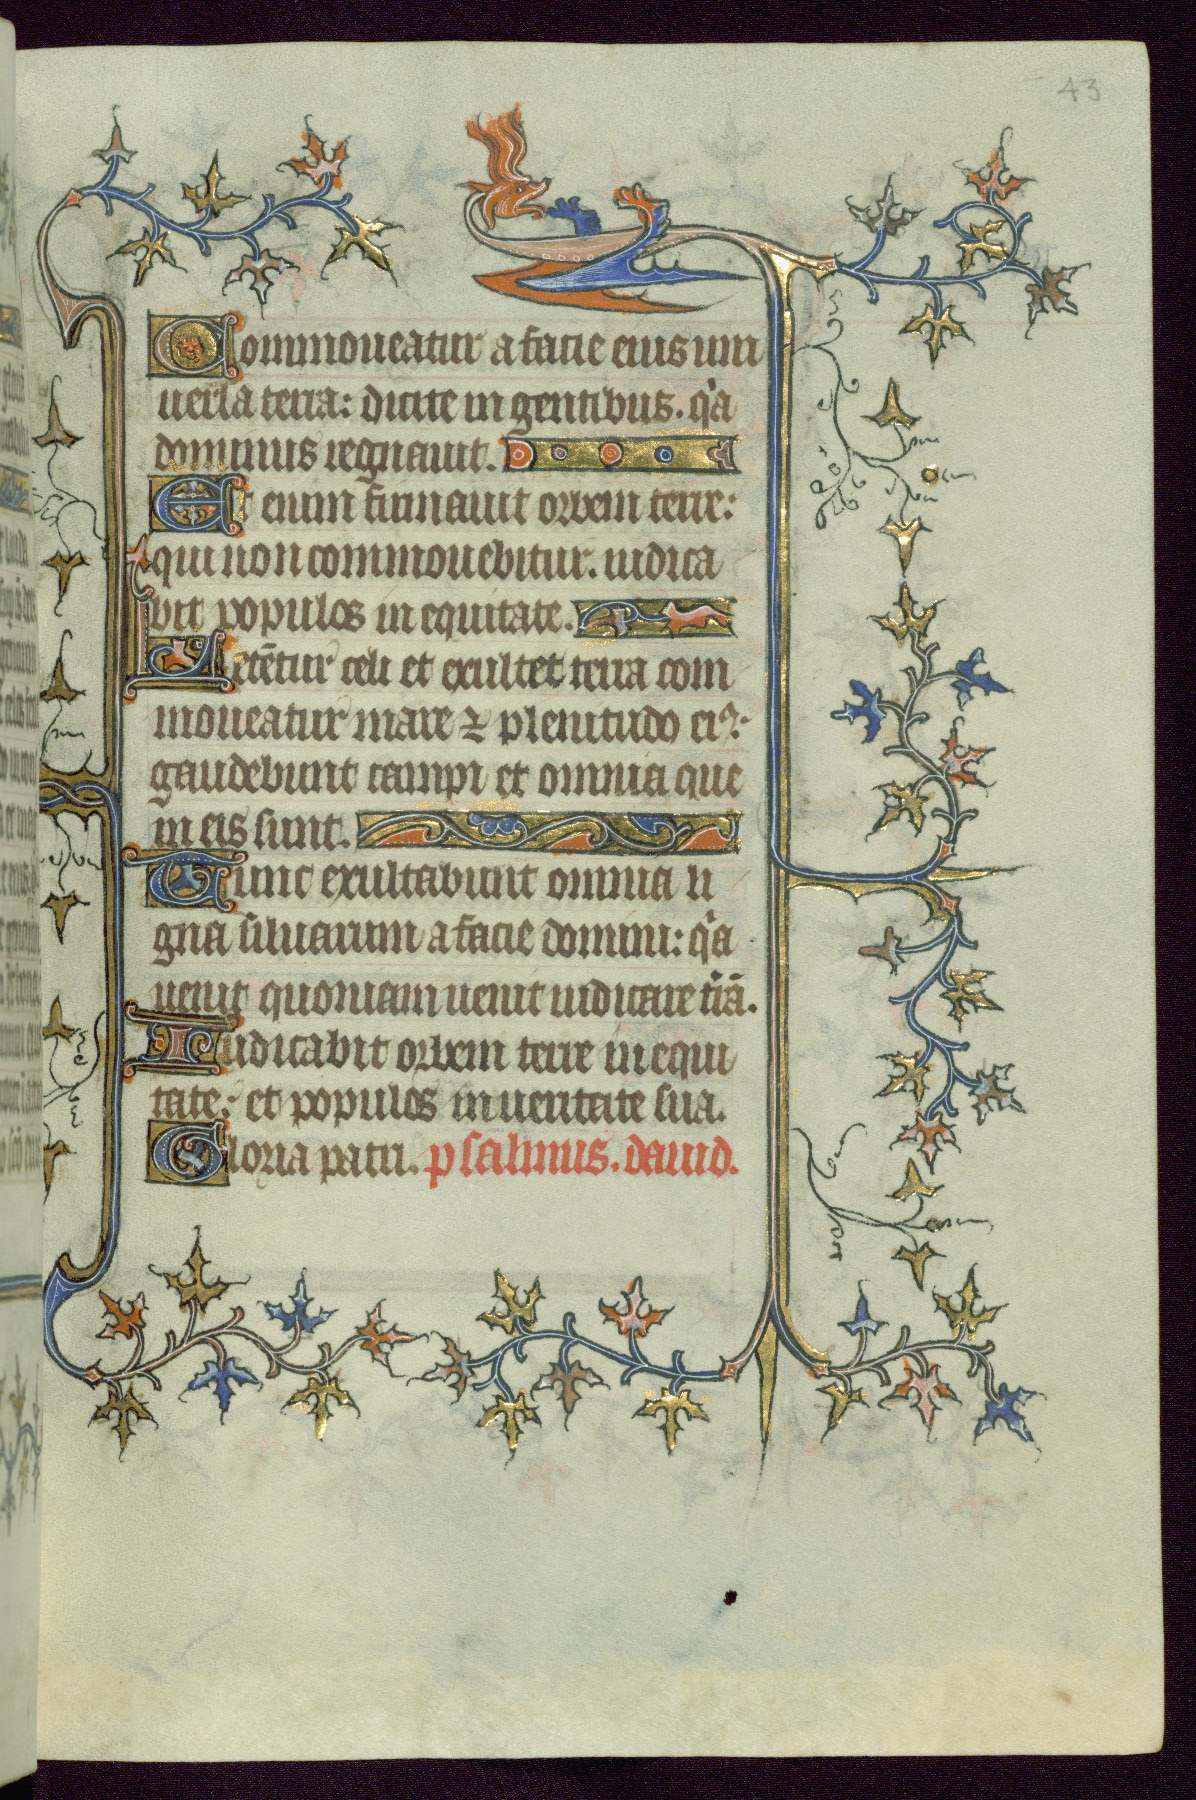 43
Commoueatur a facie eius uni
uersa terra: dicite in gentibus. qa
dominus regnauit.
Et enim firmauit orbem terre:
qui non commouebitur. iudica
bit populos in equitate.
Letētur celi et exultet terra com
moueatur mare ⁊ plenitudo eiꝰ:
gaudebunt campi et omnia que
in eis sunt.
Tunc exultabunt omnia li
gna siluarum a facie domini: qa
uenit quoniam uenit iudicare t̄rā.
Iudicabit orbem terre in equi
tate: et populos in ueritate sua.
Gloria patri. psalmus. dauid.